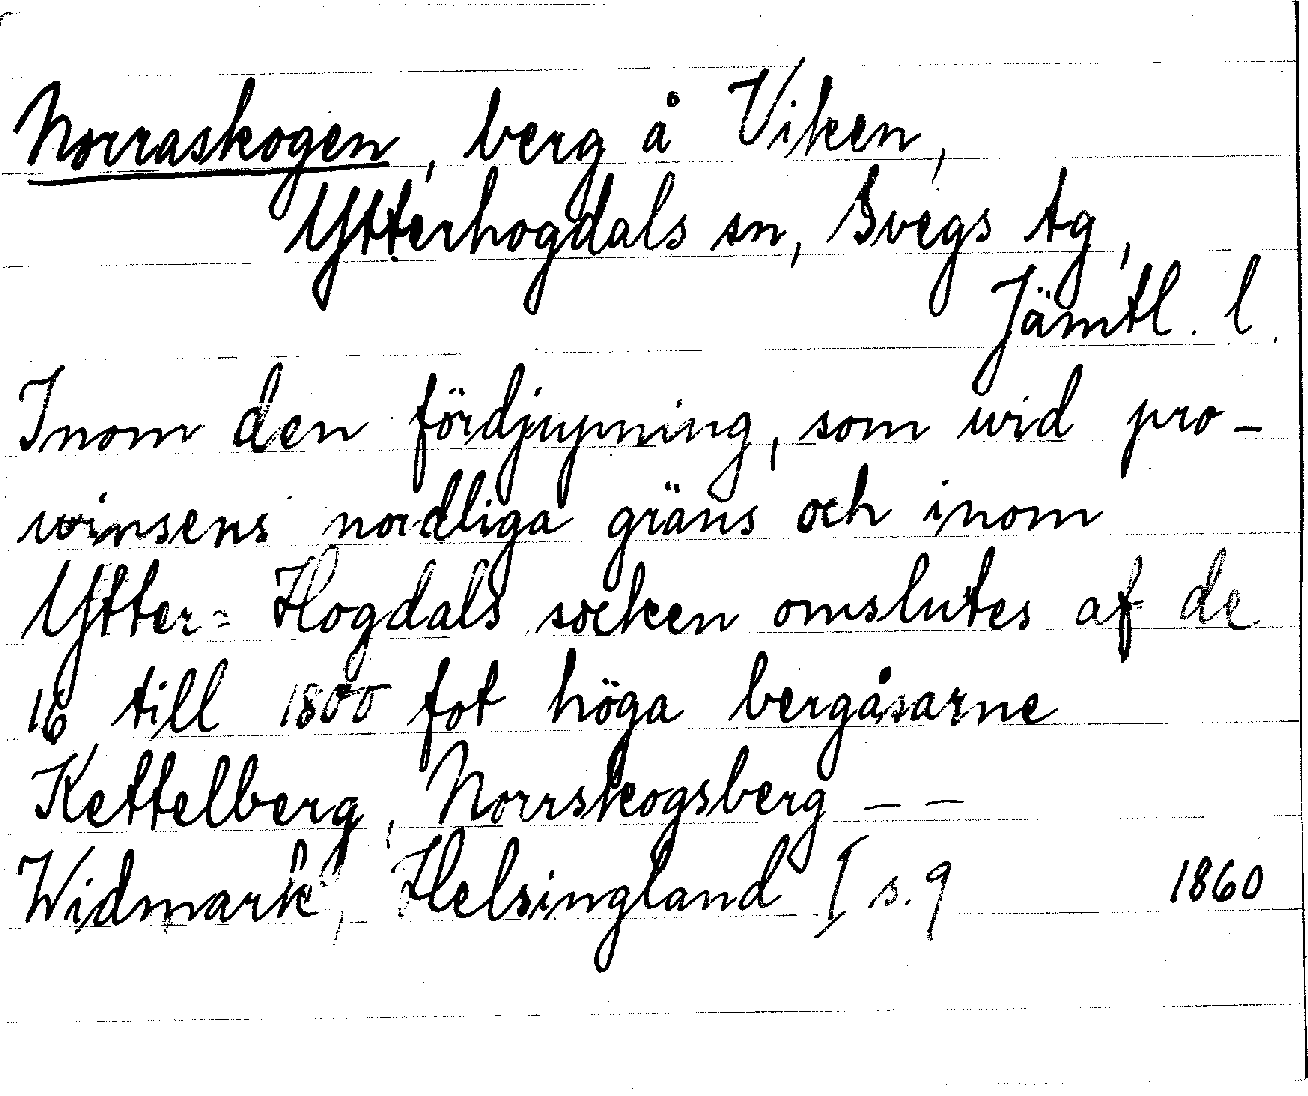 Norraskogen, berg å Viken,
Ytterhogdals sn, Svegs tg,
Jämtl. l.
Inom den fördjupning, som wid pro-
winsens nordliga gräns och inom
Ytter=Hogdals socken omslutes af de
16 till 1800 fot höga bergåsarne
Kettelberg, Norrskogsberg – –
Widmark, Helsingland I s. 9 1860